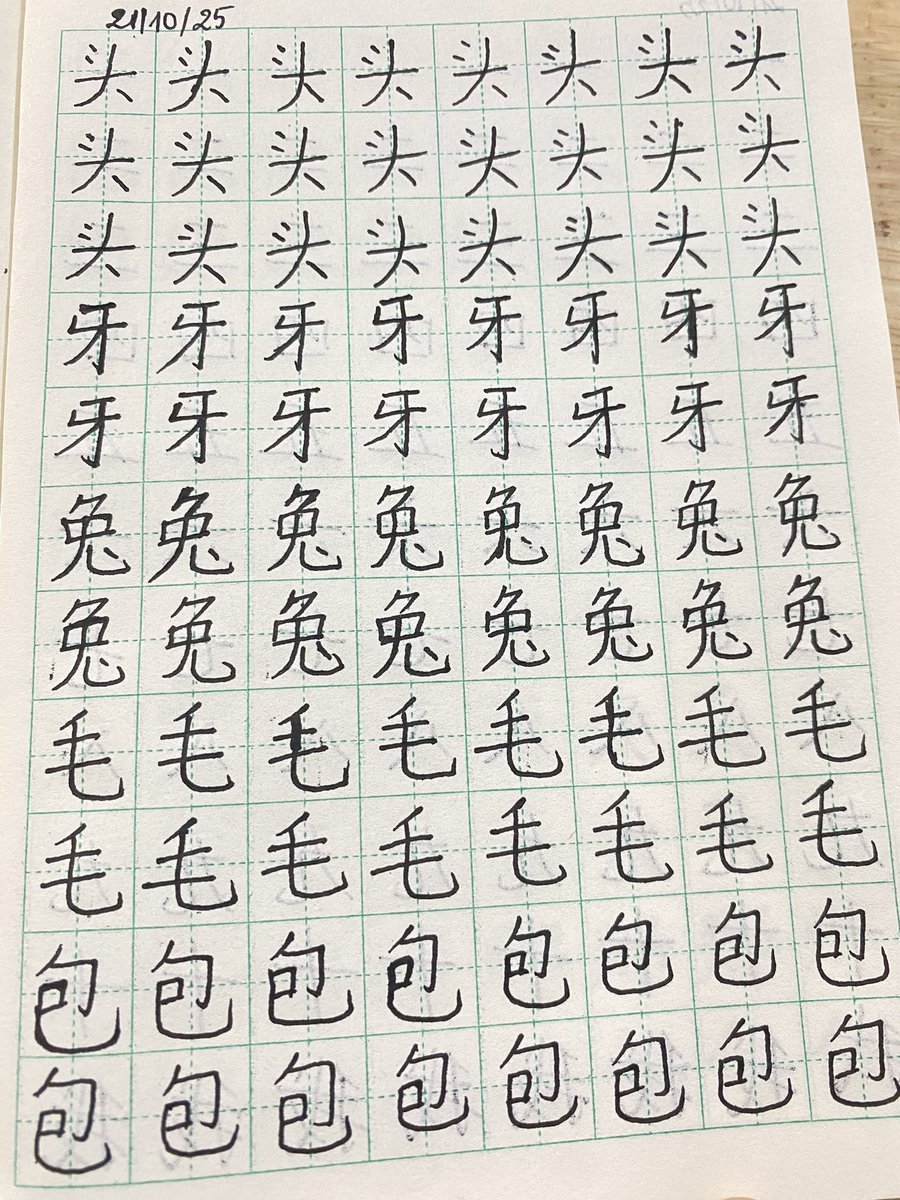 21/10/25
头头头头头头头头
头头头头头头头头
头头头头头头头头
牙牙牙牙牙牙牙牙
牙牙牙牙牙牙牙牙
兔兔兔兔兔兔兔兔
兔兔兔兔兔兔兔兔
毛毛毛毛毛毛毛毛
毛毛毛毛毛毛毛毛
包包包包包包包包
包包包包包包包包